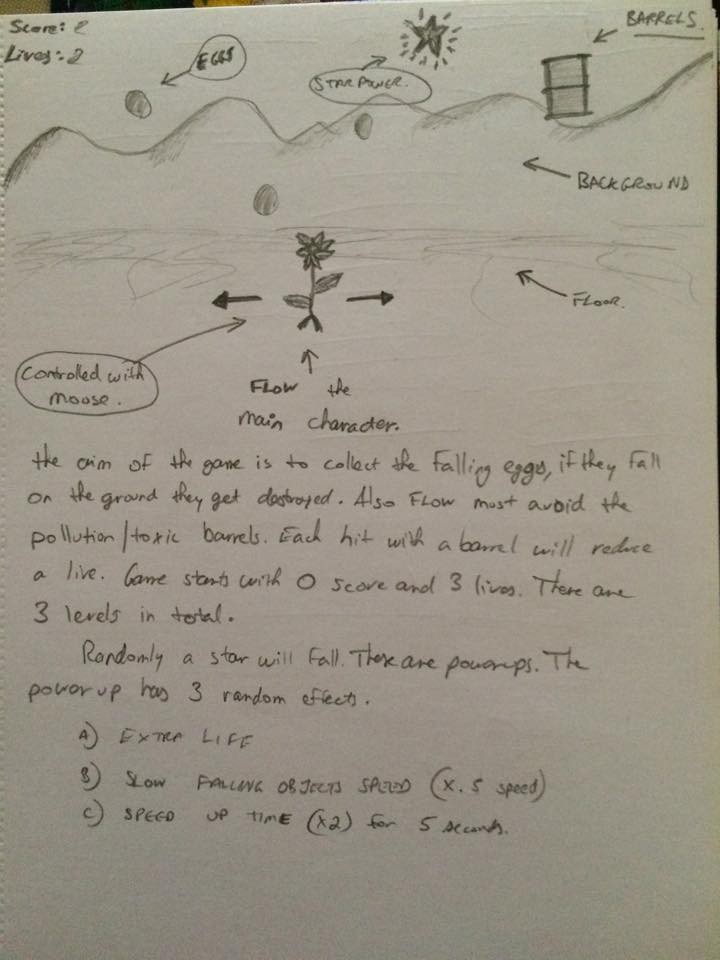 Score: 2
Lives: 2
EGGS
STAR POWER.
BARRELS.
BACKGROUND
FLOOR.
Controlled with
moose.
FLOW the
main character.
the aim of the game is to collect the falling eggs, if they fall
on the ground they get destroyed. Also FLOW most avoid the
pollution/toxic barrels. Each hit with a barrel will reduce
a live. Game starts with 0 score and 3 lives. There are
3 levels in total.
Randomly a star will fall. These are powerups. The
power up has 3 random effects.
A) EXTRA LIFE
B) SLOW FALLING OBJECTS SPEED (x.5 speed)
C) SPEED UP TIME (x2) for 5 seconds.